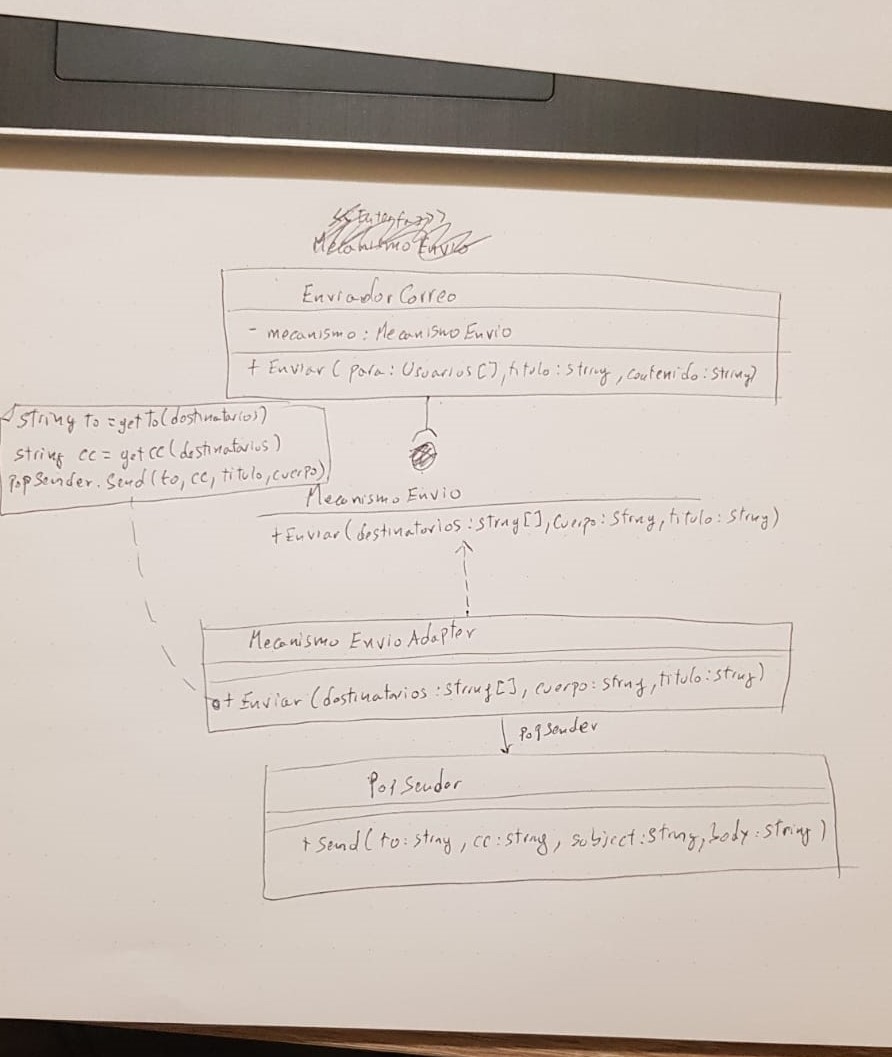 <<Interfaz>>
Mecanismo Envio
Enviador Correo
- mecanismo : Mecanismo Envio
+ Enviar ( para : Usuarios [], titulo : string, contenido : string)
string to = get to (destinatarios)
string cc = get cc (destinatarios)
PopSender. Send (to, cc, titulo, cuerpo)
Mecanismo Envio
+ Enviar (destinatarios : string [], cuerpo : string, titulo : string)
Mecanismo Envio Adapter
+ Enviar (destinatarios : string [], cuerpo : string, titulo : string)
PopSender
Pop Sender
+ Send ( to : string, cc : string, subject : string, body : string )